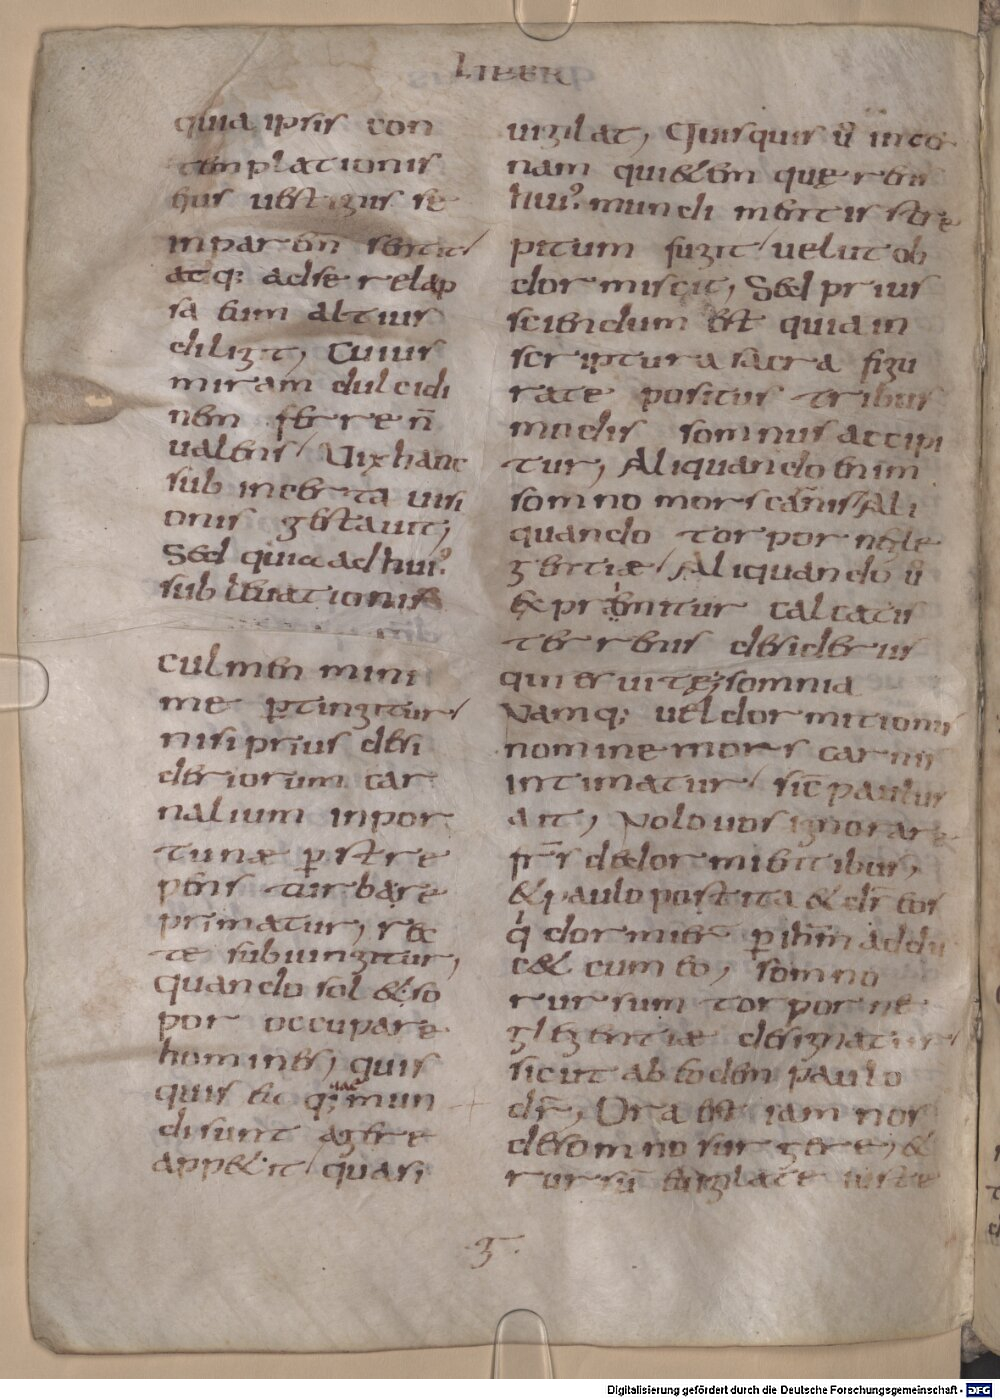 LIBER
quia ipsis con
templationis
eius uestigiis se
inparem sentit
atq; ad se relap
sa eum altius
diligit, Cuius
miram dulcidi
nem ferre n̄
ualens Vix hanc
sub incerta uisi
onis gestauit;
Sed quia ad hui᾽
subleuationis
culmen mini
me ꝑtingitur
nisi prius desi
deriorum car
nalium inpor
tunæ ꝑstre
pens turba re
primatur, rec
te subiungitur,
quando sol& so
por occupare
homines, quis
quis ea q; mun
di sunt agere
app&it quasi
uigilat, Quisquis ū inter
nam qui&em quęrens
hui᾽ mundi mentis stre
pitum fugit uelut ob
dormiscit, Sed prius
sciendum est quia in
scriptura sacra figu
rate positus tribus
modis somnus accipi
tur, Aliquando enim
somno mors carnis Ali
quando torpor negle
gentiæ Aliquando ū
exprimitur calcatis
terrenis desideriis
quies uitę; somnia
Namq; uel dormitionis
nomine mors carnis
intimatur sic paulus
ait, Nolo uos ignorare
frs de dormientibus,
& paulo post ita & dr̄ eos
q̇ dormier̄ ꝑ ihm̄ addu
c& cum eo, somno
rursum torpor ne
glegentiæ designatur
sicut ab eodem paulo
dr̄, Ora est iam nos
de somno surgere, &
rursū euigilate iuste
3
Digitalisierung gefördert durch die Deutsche Forschungsgemeinschaft - DFG